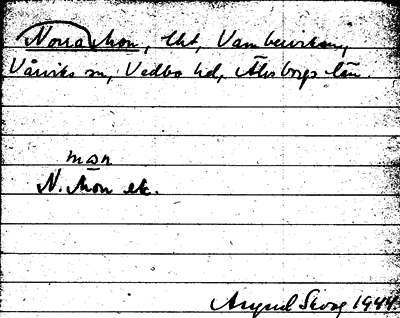 Norra Mon, tkt, Vambervikam,
Vårviks sn, Vedbo hd, Älvsborgs län.
mɷn
N. Mon ek.
Assar 1944.